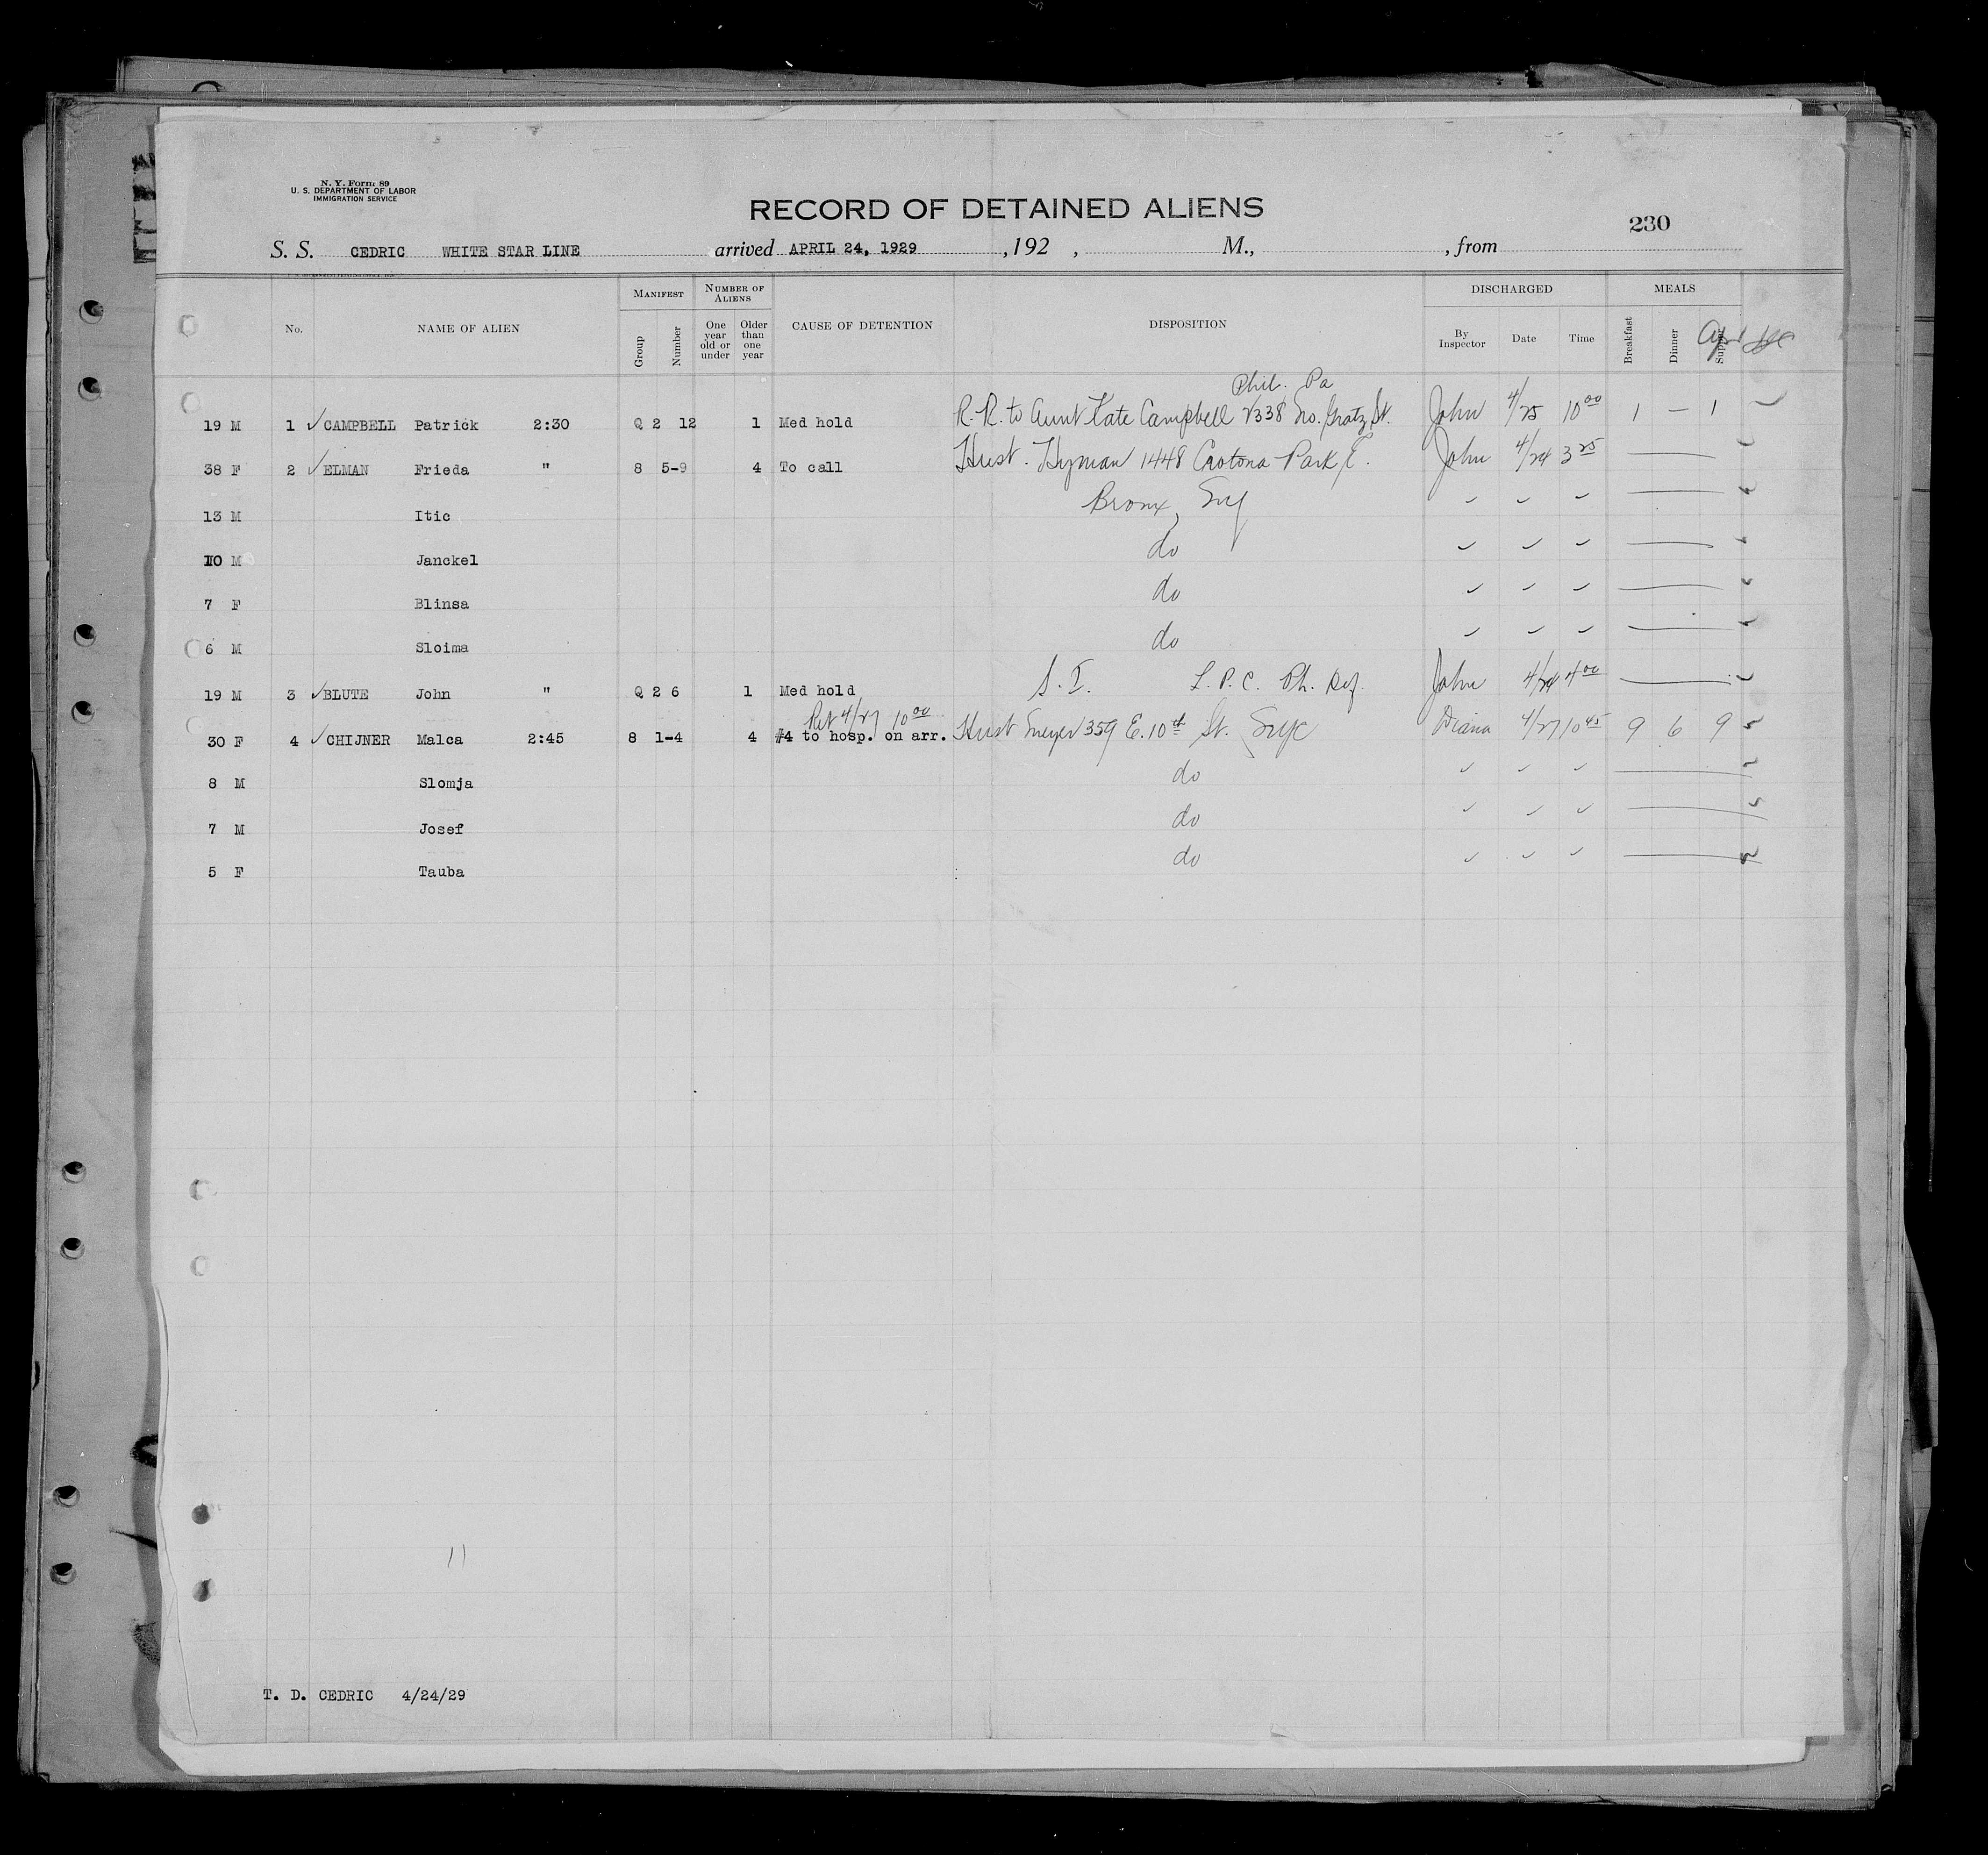 N. Y. Form 89
U. S. DEPARTMENT OF LABOR
IMMIGRATION SERVICE
RECORD OF DETAINED ALIENS
230
S. S. CEDRIC WHITE STAR LINE arrived APRIL 24, 1929 , 192 , M., , from
No. NAME OF ALIEN MANIFEST Group Number NUMBER OF ALIENS One year old or under Older than one year CAUSE OF DETENTION DISPOSITION DISCHARGED By Inspector Date Time MEALS Breakfast Dinner Supper
Phil. Pa
19 M 1 ✓ CAMPBELL Patrick 2:30 Q 2 12 1 Med hold R.R. to Aunt Kate Campbell 2338 No. Gratz St. John 4/25 10 00 1 — 1
38 F 2 ✓ ELMAN Frieda " 8 5-9 4 To call Husb. Hyman 1448 Crotona Park E. John 4/24 3 25
13 M Itic Bronx, NY ✓ ✓ ✓
10 M Janckel do ✓ ✓ ✓
7 F Blinsa do ✓ ✓ ✓
6 M Sloima do ✓ ✓ ✓
19 M 3 ✓ BLUTE John " Q 2 6 1 Med hold S. I. L. P. C. Ph. Def. John 4/24 4 00
Ret 4/27 10 00
30 F 4 ✓ CHIJNER Malca 2:45 8 1-4 4 #4 to hosp. on arr. Husb Meyer 359 E. 10th St. NYC Diana 4/27 10 45 9 6 9
8 M Slomja do ✓ ✓ ✓
7 M Josef do ✓ ✓ ✓
5 F Tauba do ✓ ✓ ✓
11
T. D. CEDRIC 4/24/29